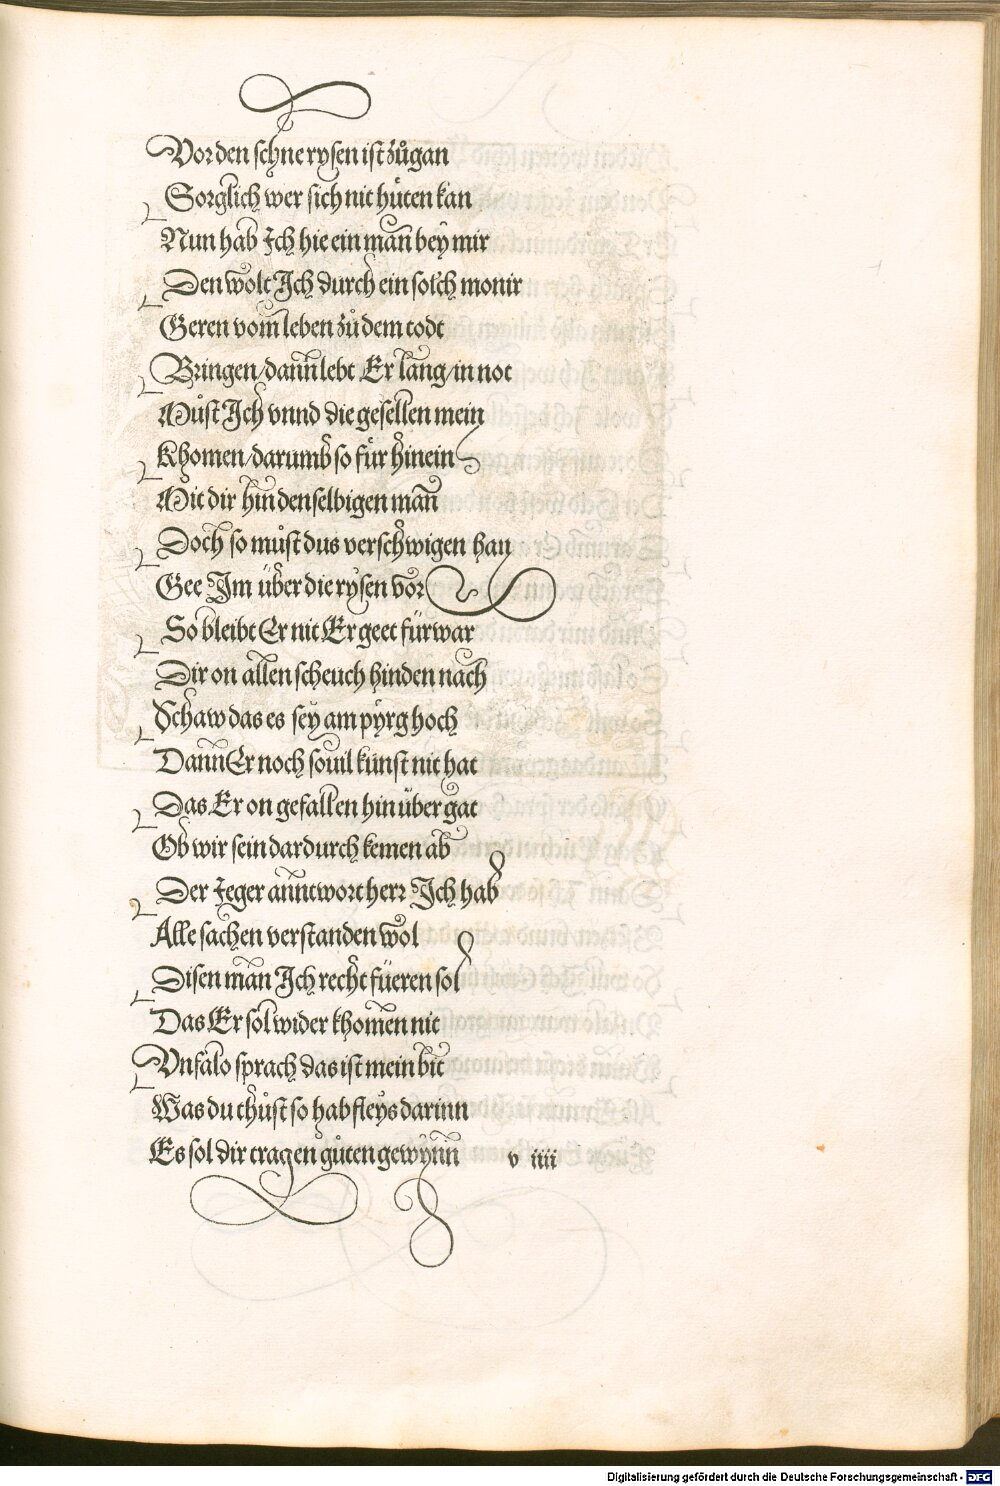 Vor den schne rysen ist zůgan
Sorglich wer sich nit hůten kan
Nun hab Ich hie ein man̄ bey mir
Den wolt Ich durch ein solch monir
Geren vom leben zů dem todt
Bringen/dann lebt Er lang/in not
Můst Ich vnnd die gesellen mein
Khomen/darumb so für hinein
Mit dir hin denselbigen man̄
Doch so můst dus verschwigen han
Gee Im über die rysen vor
So bleibt Er nit Er geet fürwar
Dir on allen scheuch hinden nach
Schaw das es sey am pyrg hoch
Dann Er noch souil kunst nit hat
Das Er on gefallen hin über gat
Ob wir sein dardurch kemen ab
Der Jeger anntwort herr Ich hab
Alle sachen verstanden wol
Disen man Ich recht füeren sol
Das Er sol wider khomen nit
Vnfalo sprach das ist mein bit
Was du thůst so hab fleys darinn
Es sol dir tragen gůten gewynn v iiii
Digitalisierung gefördert durch die Deutsche Forschungsgemeinschaft - DFG